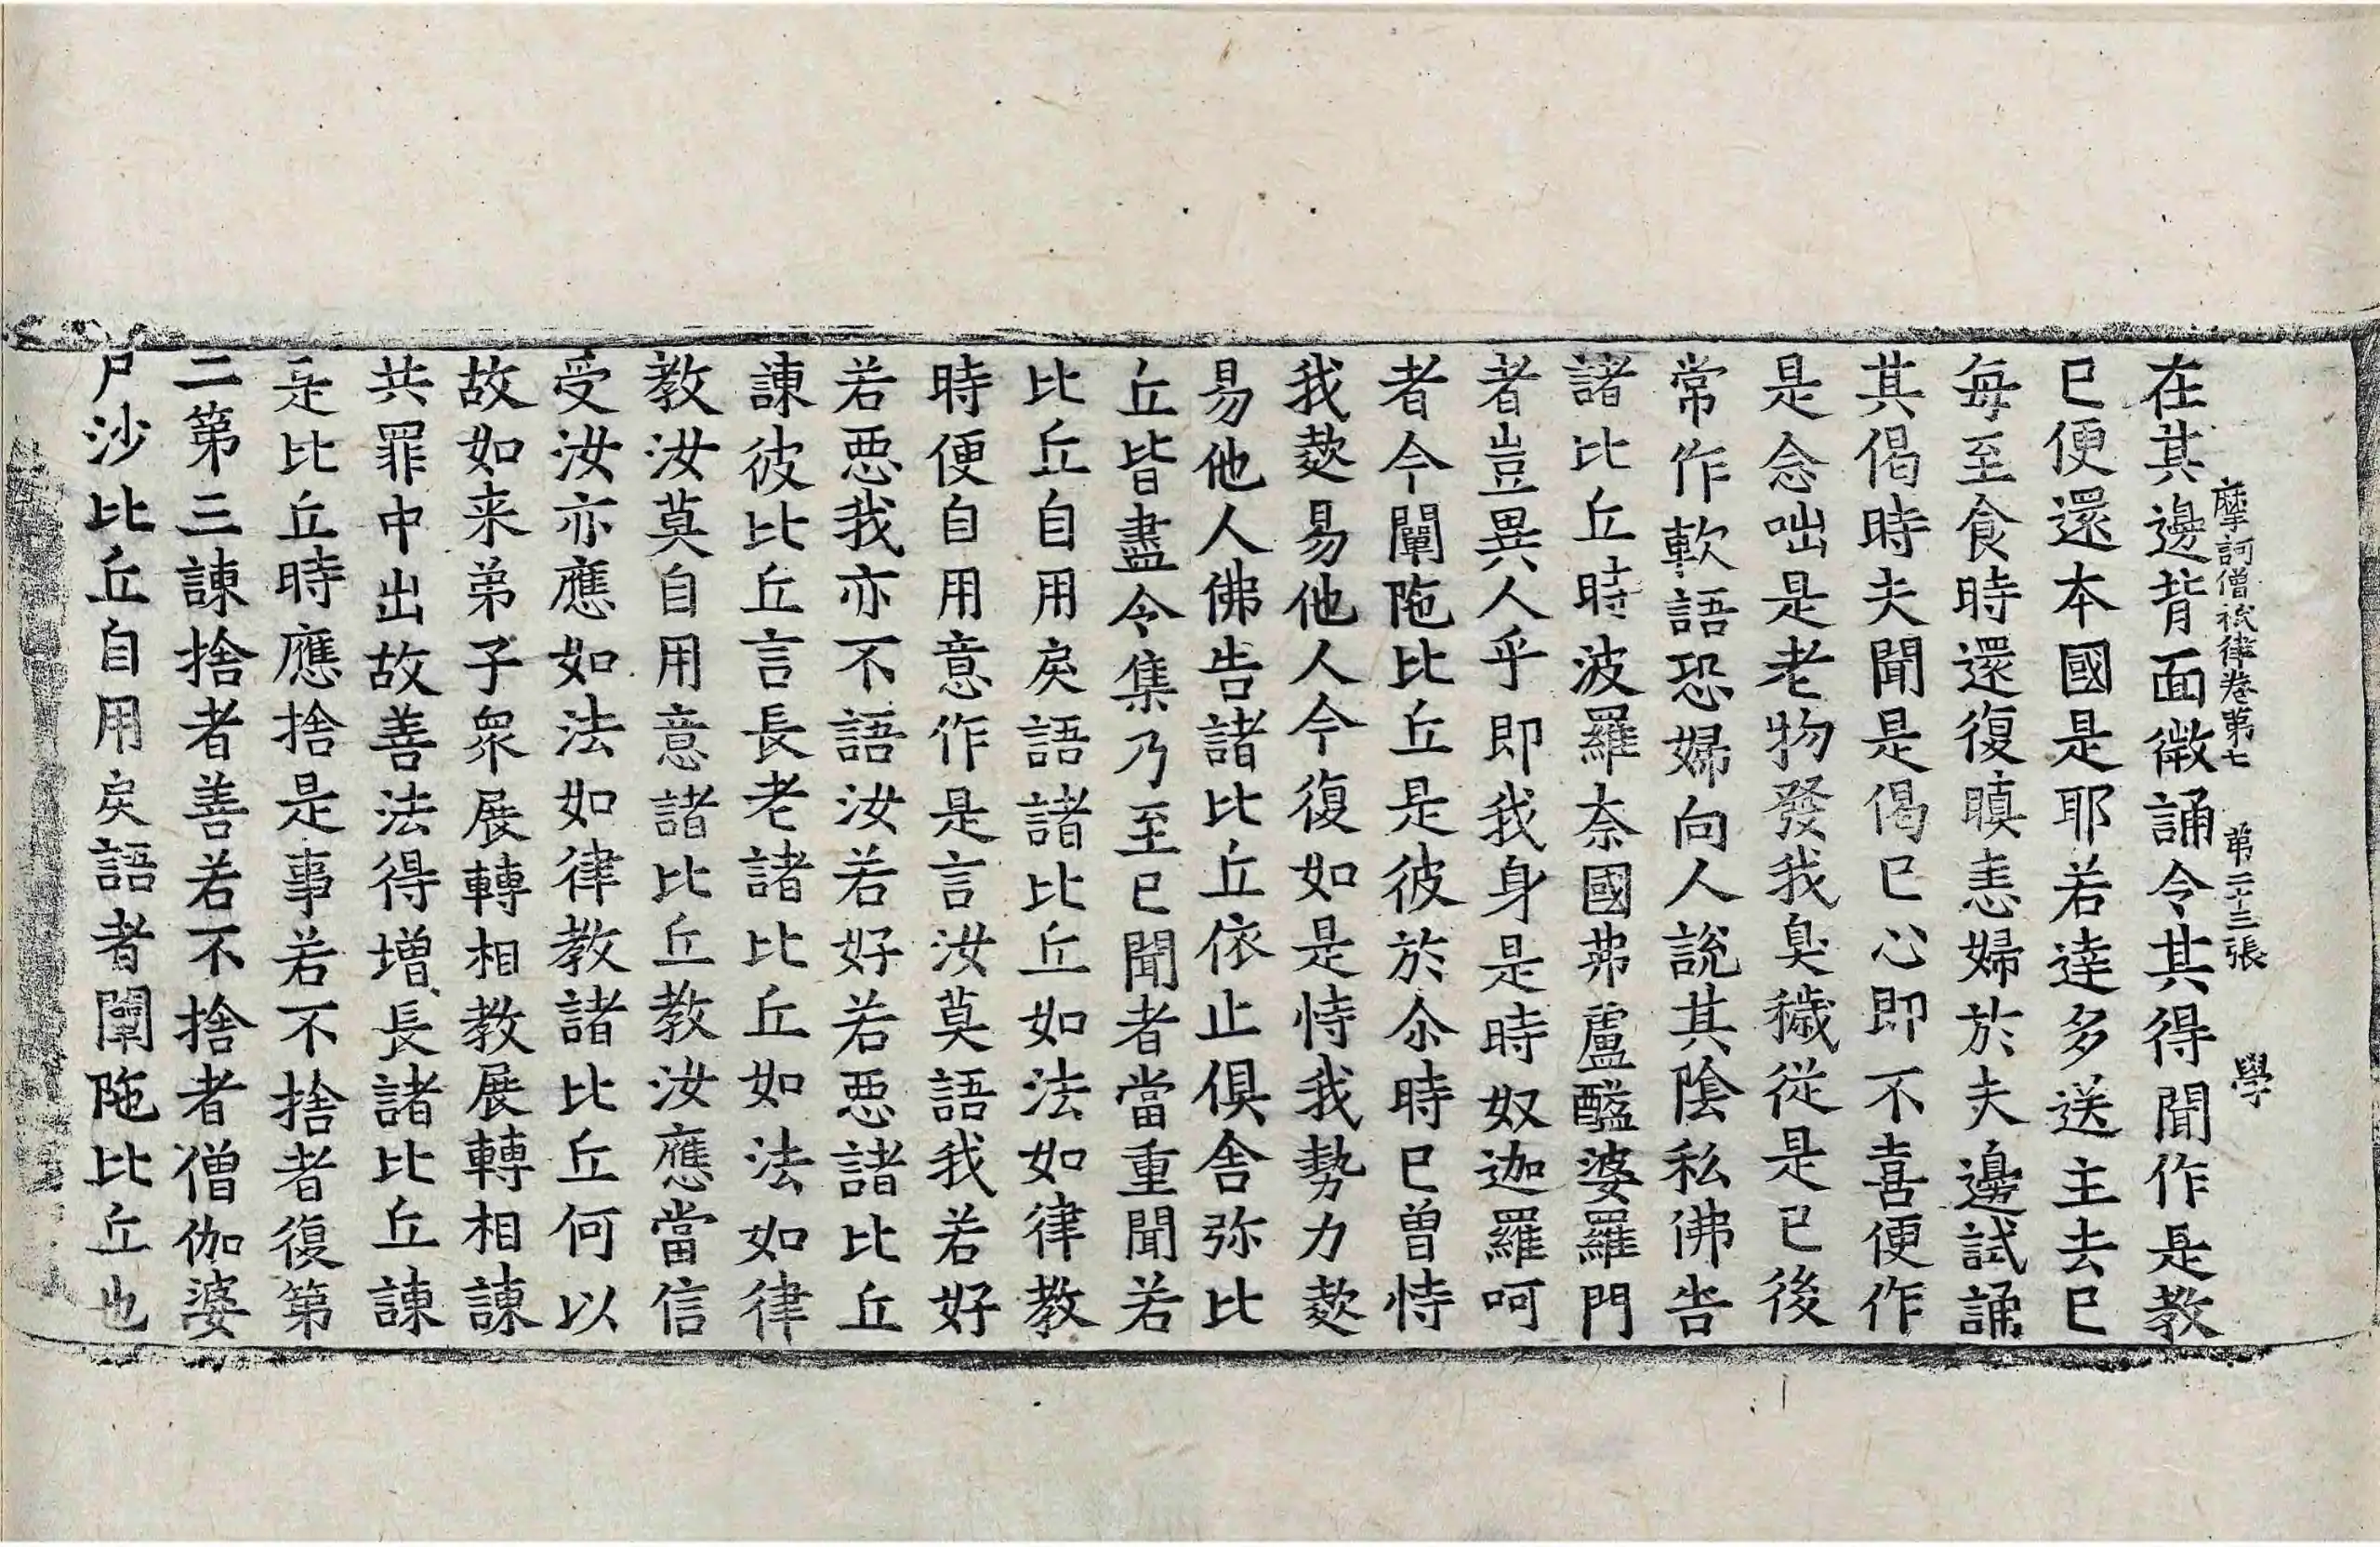 摩訶僧祇律卷第七 第二十三張 學
在其邊背面微誦令其得聞作是教
已便還本國是耶若達多送主去已
每至食時還復瞋恚婦於夫邊試誦
其偈時夫聞是偈已心即不喜便作
是念咄是老物發我臭穢從是已後
常作軟語恐婦向人說其陰私佛告
諸比丘時波羅奈國弗盧醯婆羅門
者豈異人乎即我身是時奴迦羅呵
者今闡陁比丘是彼於尒時已曾恃
我蔜易他人今復如是恃我勢力蔜
易他人佛告諸比丘依止俱舍弥比
丘皆盡令集乃至已聞者當重聞若
比丘自用戾語諸比丘如法如律教
時便自用意作是言汝莫語我若好
若惡我亦不語汝若好若惡諸比丘
諫彼比丘言長老諸比丘如法如律
教汝莫自用意諸比丘教汝應當信
受汝亦應如法如律教諸比丘何以
故如来弟子衆展轉相教展轉相諫
共罪中出故善法得增長諸比丘諫
是比丘時應捨是事若不捨者復第
二第三諫捨者善若不捨者僧伽婆
尸沙比丘自用戾語者闡陁比丘也